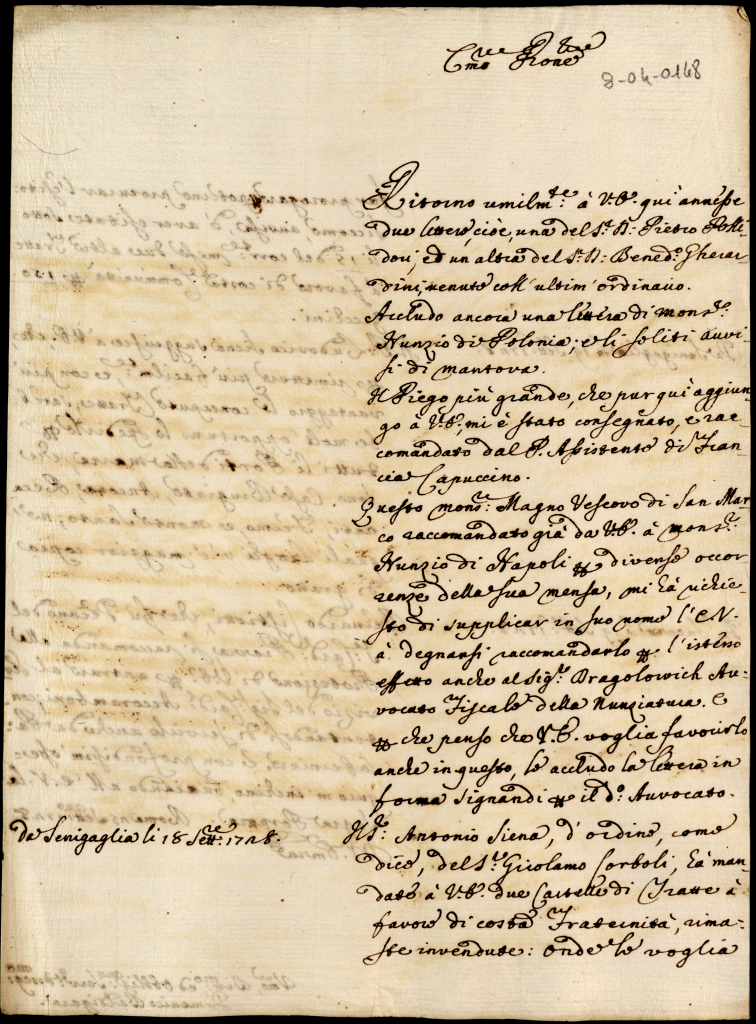 Em̃o Pron̄e
8-04-0148
Ritorno umilm.te à V.E. qui annesse
due lettere, cioè, una del S.r D. Pietro Polli-
dori, ed un'altra del S.r D. Bened.o Gherar-
dini, venute coll'ultim'ordinario.
Accludo ancora una lettera di Mons.r
Nunzio di Polonia, e li soliti avvi-
si di Mantova.
Il Piego più grande, che pur qui aggiun-
go à V.E., mi è stato consegnato, e rac-
comandato dal P. Assistente di Fran-
cia Capuccino.
Questo Mons.r Magno Vescovo di San Mar-
co raccomandato già da V.E. à Mons.r
Nunzio di Napoli per diverse occor-
renze della sua mensa, mi hà richie-
sto di supplicar in suo nome l'E.V.
à degnarsi raccomandarlo per l'istesso
effetto anche al Sig.r Bragolowich Av-
vocato Fiscale della Nunziatura. E
perche penso che V.E. voglia favorirlo
anche in questo, le accludo la lettera in
forma signandi per il d.o Avvocato.
Il S.r Antonio Siena, d'ordine, come
dice, del S.r Girolamo Corboli, hà man-
date à V.E. due Cartelle di Tratte à
favore di costa Fraternità, rima-
ste invendute: onde le voglia
da Senigaglia li 18 Sett.re 1728.